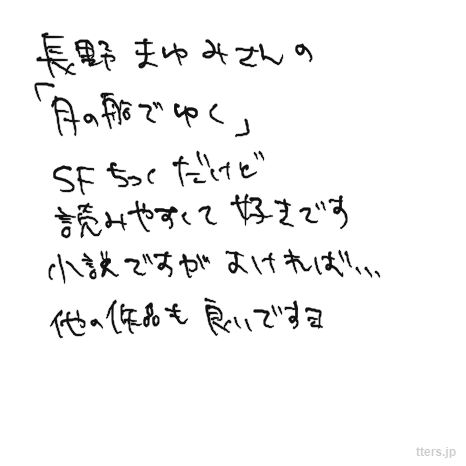 長野まゆみさんの
「月の船でゆく」
SFちっくだけど
読みやすくて好きです
小説ですがよければ…
他の作品も良いですヨ
tters.jp